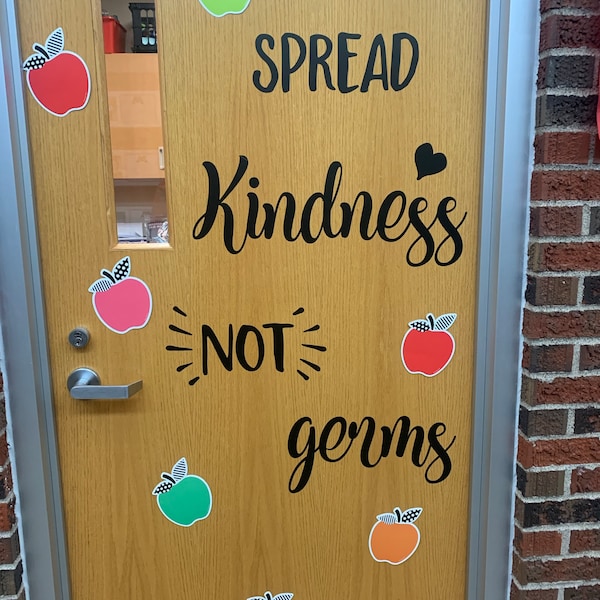 SPREAD
Kindness
NOT
germs